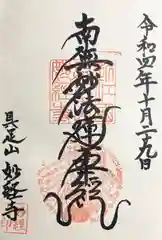 令和四年十月二九日
南無妙法蓮華経
具足山 妙経寺